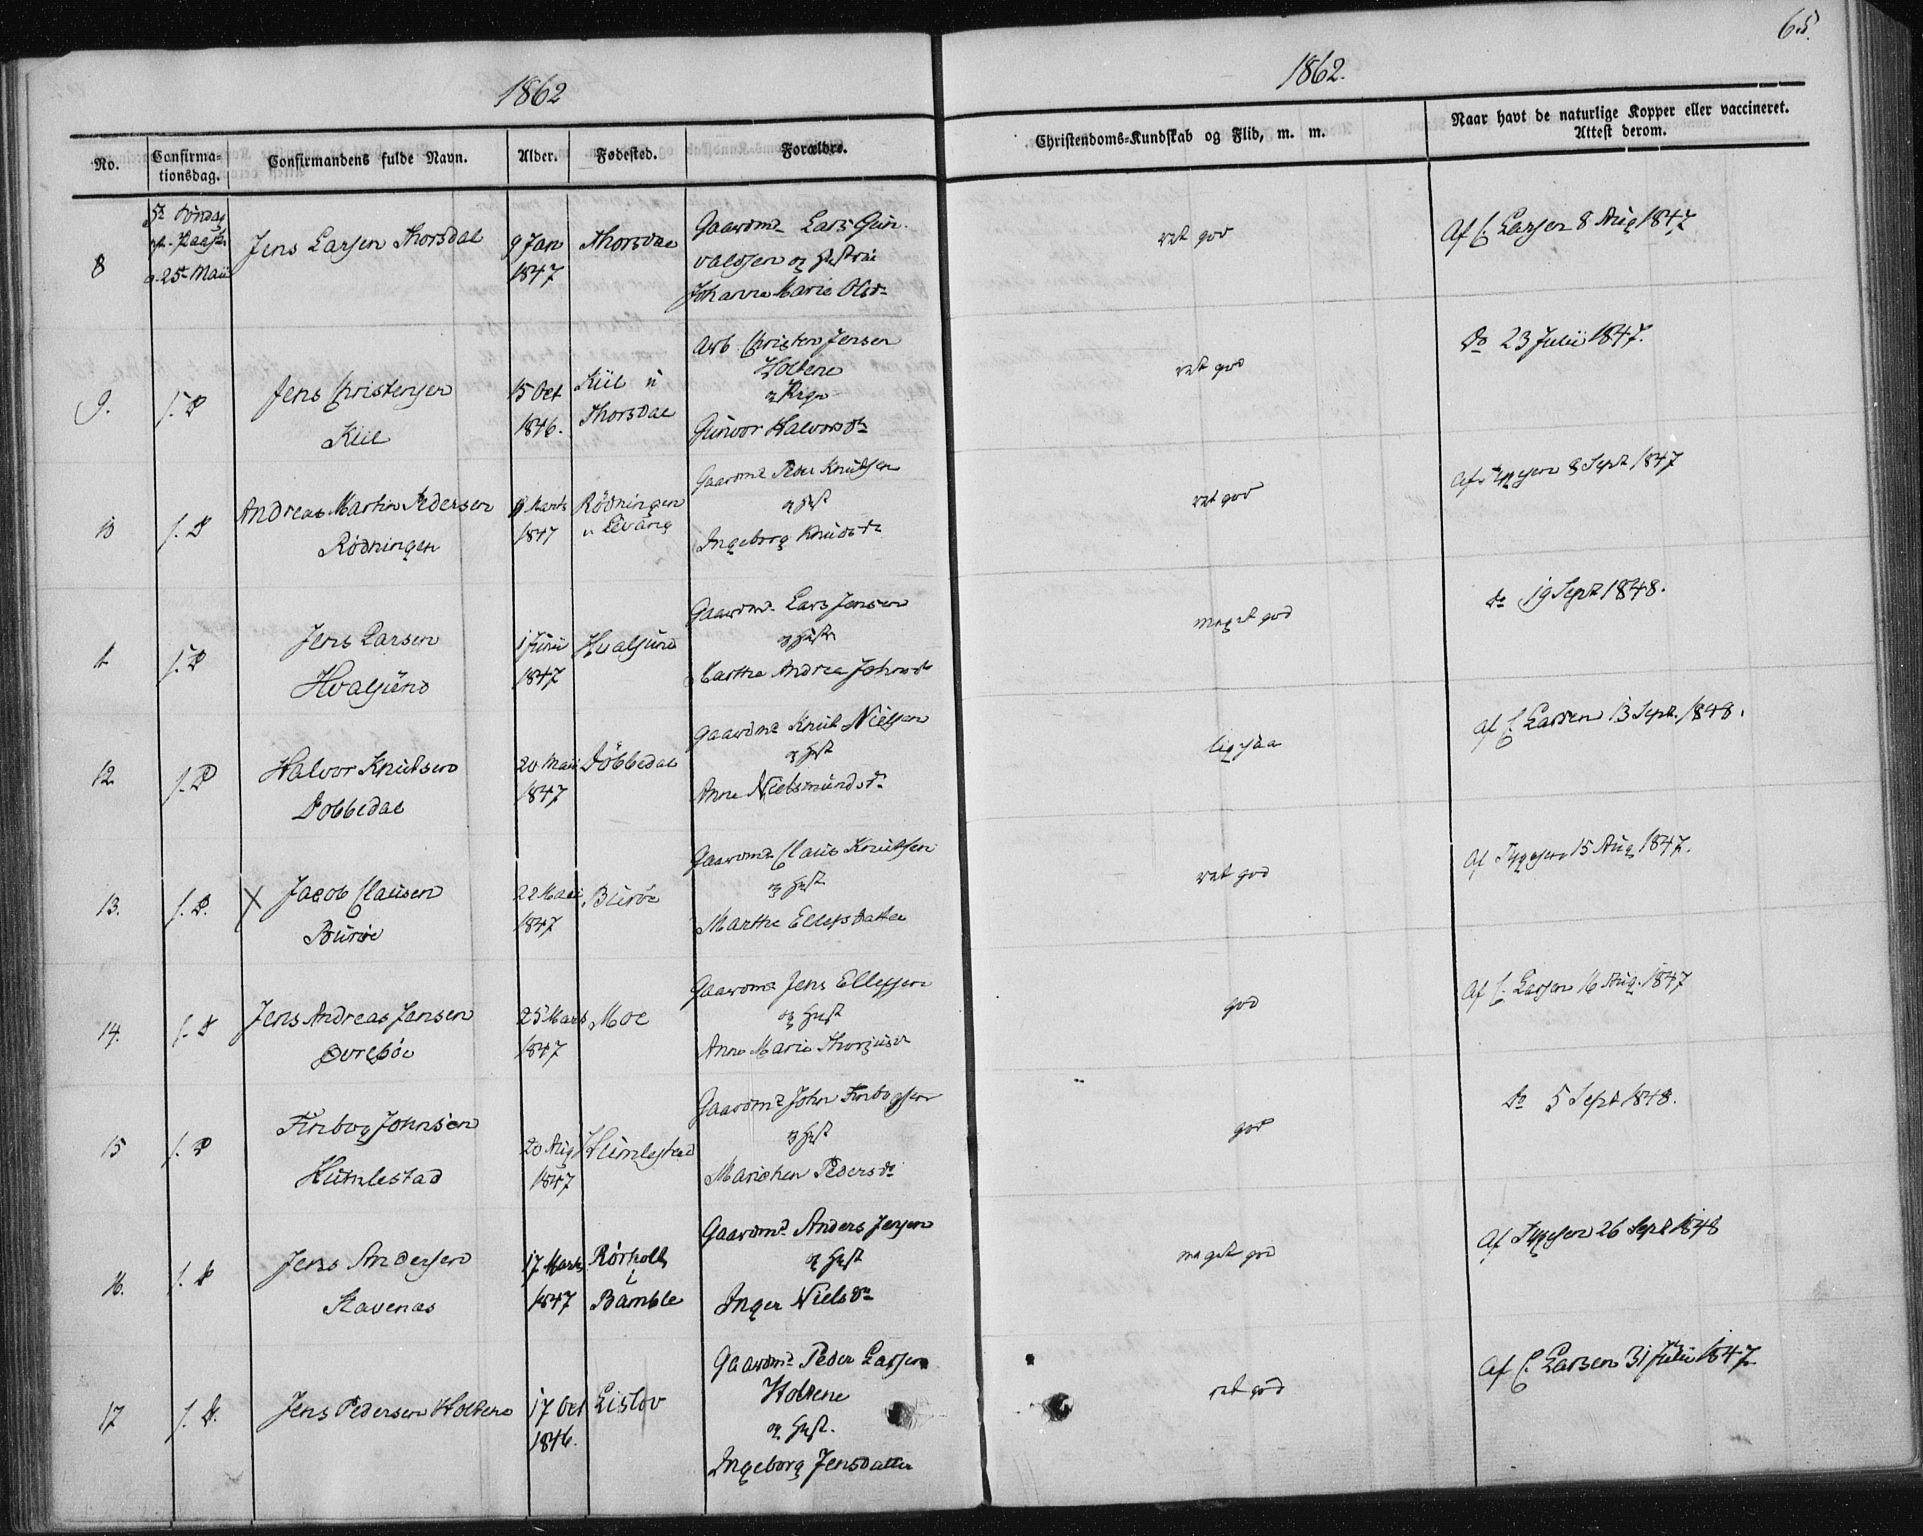 65.
1862
1862.
No.
Confirma-
tionsdag.
Confirmandens fulde Navn.
Alder.
Fødested.
Forældre.
Christendoms-Kundskab og Flid, m. m.
Naar havt de naturlige Kopper eller vaccineret.
Attest derom.
8
5te Søndag
25 Maii
Jens Larsen Thorsdal
9 Jan
1847
Thorsdal
Gaardmd Lars Gun-
valdsen og Hustrue
Johanne Marie Olsdr
ret god
Af C. Larsen 8 Aug 1847
9.
s. D
Jens Christensen
Kiil
15 Oct
1846.
Kiil u
Thorsdal
Arb. Christen Jensen
Holtene
og Pige
Gunvor Halvorsdr
ret god
do 23 Julii 1847.
10
s. D
Andreas Martin Pedersen
Rödningen
8 Marts
1847
Rödningen
u Levang
Gaardmd Peder Knutsen
og Hust
Ingeborg Knudsdr
ret god
Af Tygesen 8 Sept 1847
11
s. D
Jens Larsen
Hvalsund
1 Junii
1847
Hvalsund
Gaardmd Lars Jensen
og Hustr
Marthe Andrea Johnsdr
meget god
do 19 Sept 1848.
12.
s. D
Halvor Knutsen
Dobbedal
20 Maii
1847
Döbbedal
Gaardmd Knut Nielsen
og Hust
Anne Nielsmundsdr
ligesaa
af C. Larsen 13 Sept. 1848.
13.
s. D.
X Jacob Clausen
Buröe
22 Maii
1847
Buröe
Gaardmd Claus Knutsen
og Hust
Marthe Ellefsdatter
ret god
Af Tygesen 15 Aug 1847.
14.
s. D
Jens Andreas Jensen
Overböe
25 Marts
1847
Moe
Gaardmd Jens Ellefsen
og Hust
Anne Marie
god
Af C. Larsen 16 Aug. 1847
15
s. D
Finbog Johnsen
Humlestad
20 Aug
1847
Humlestad
Gaardmd John Finbogsen
og Hust
Marichen Pedersdr
god
do 5 Sept 1848.
16.
s. D
Jens Andersen
Stavenæs
17 Marts
1847
Rörholt
i
Bamble
Gaardmd Anders Jensen
og Hust
Inger Nielsdr
meget god
Af Tygesen 26 Sept 1848
17
s. D.
Jens Pedersen Holtene
17 Oct
1846.
Eislov
Gaardmd Peder Larsen
Holtene
og Hust.
Ingeborg Jensdatter
ret god
Af C. Larsen 31 Julii 1847